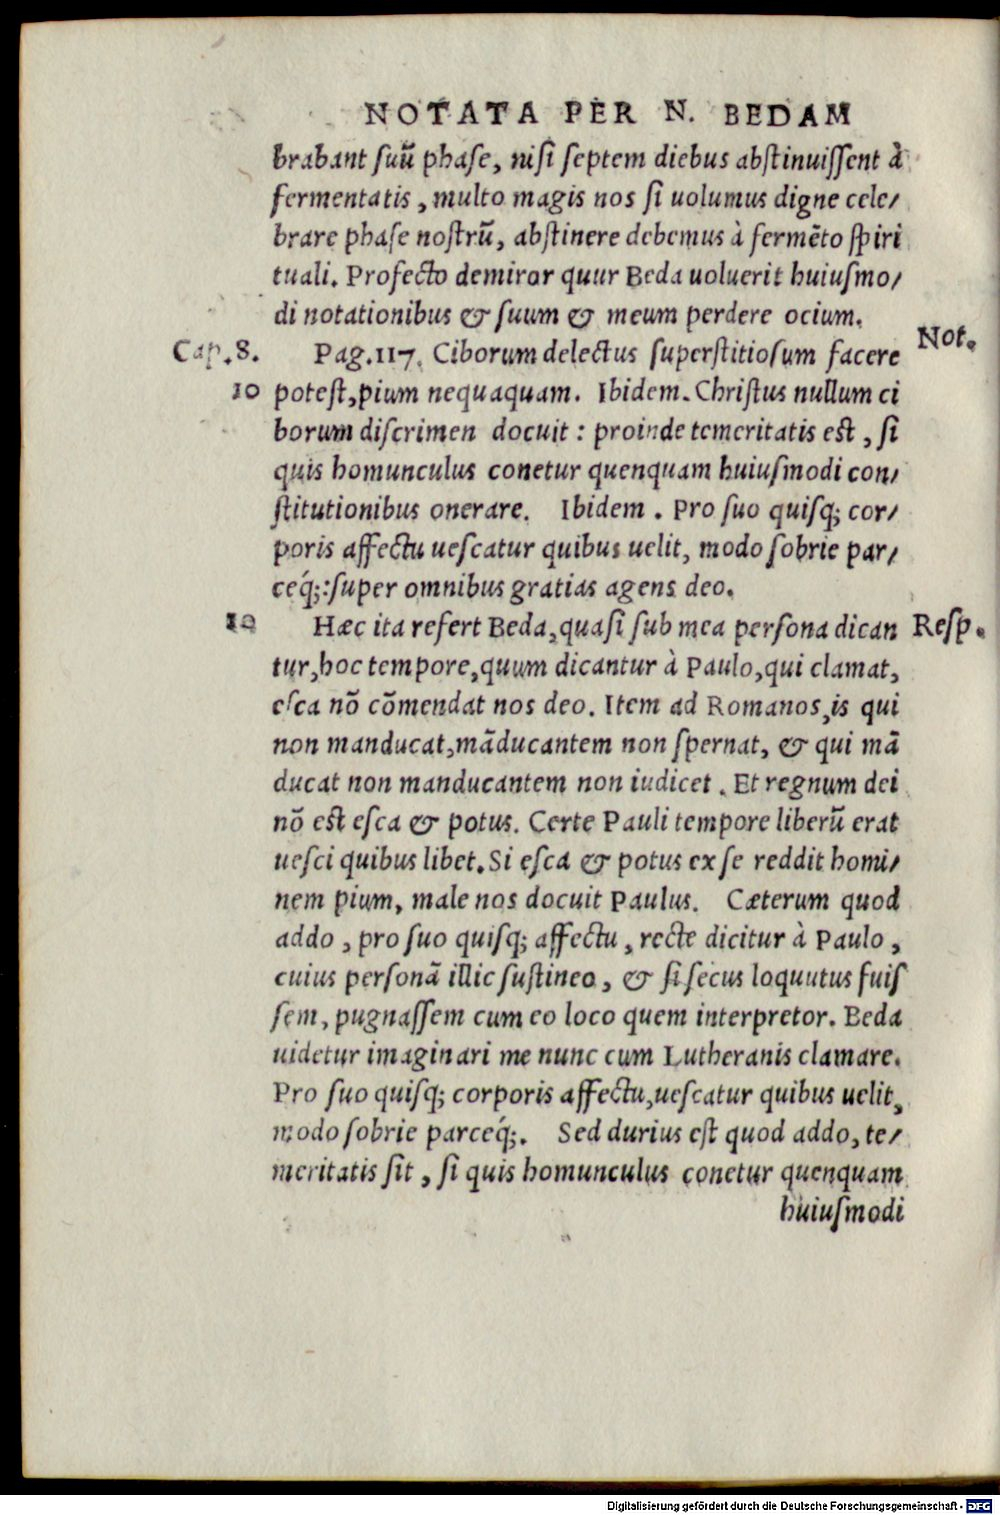 NOTATA PER N. BEDAM
brabant suũ phase, nisi septem diebus abstinuissent à
fermentatis, multo magis nos si uolumus digne cele/
brare phase nostrũ, abstinere debemus à fermẽto spiri
tuali. Profecto demiror quur Beda uoluerit huiusmo/
di notationibus & suum & meum perdere ocium.
Not.
Cap.8. Pag.117. Ciborum delectus superstitiosum facere
10 potest, pium nequaquam. Ibidem. Christus nullum ci
borum discrimen docuit : proinde temeritatis est, si
quis homunculus conetur quenquam huiusmodi con/
stitutionibus onerare. Ibidem. Pro suo quisq; cor/
poris affectu uescatur quibus uelit, modo sobrie par/
ceq́;: super omnibus gratias agens deo.
10 Hæc ita refert Beda, quasi sub mea persona dican Resp.
tur, hoc tempore, quum dicantur à Paulo, qui clamat,
esca nõ cõmendat nos deo. Item ad Romanos, is qui
non manducat, mãducantem non spernat, & qui mã
ducat non manducantem non iudicet. Et regnum dei
nõ est esca & potus. Certe Pauli tempore liberũ erat
uesci quibus libet. Si esca & potus ex se reddit homi/
nem pium, male nos docuit Paulus. Cæterum quod
addo, pro suo quisq; affectu, recte dicitur à Paulo,
cuius personã illic sustineo, & si secus loquutus fuis
sem, pugnassem cum eo loco quem interpretor. Beda
uidetur imaginari me nunc cum Lutheranis clamare.
Pro suo quisq; corporis affectu, uescatur quibus uelit,
modo sobrie parceq́;. Sed durius est quod addo, te/
meritatis sit, si quis homunculus conetur quenquam
huiusmodi
Digitalisierung gefördert durch die Deutsche Forschungsgemeinschaft - DFG